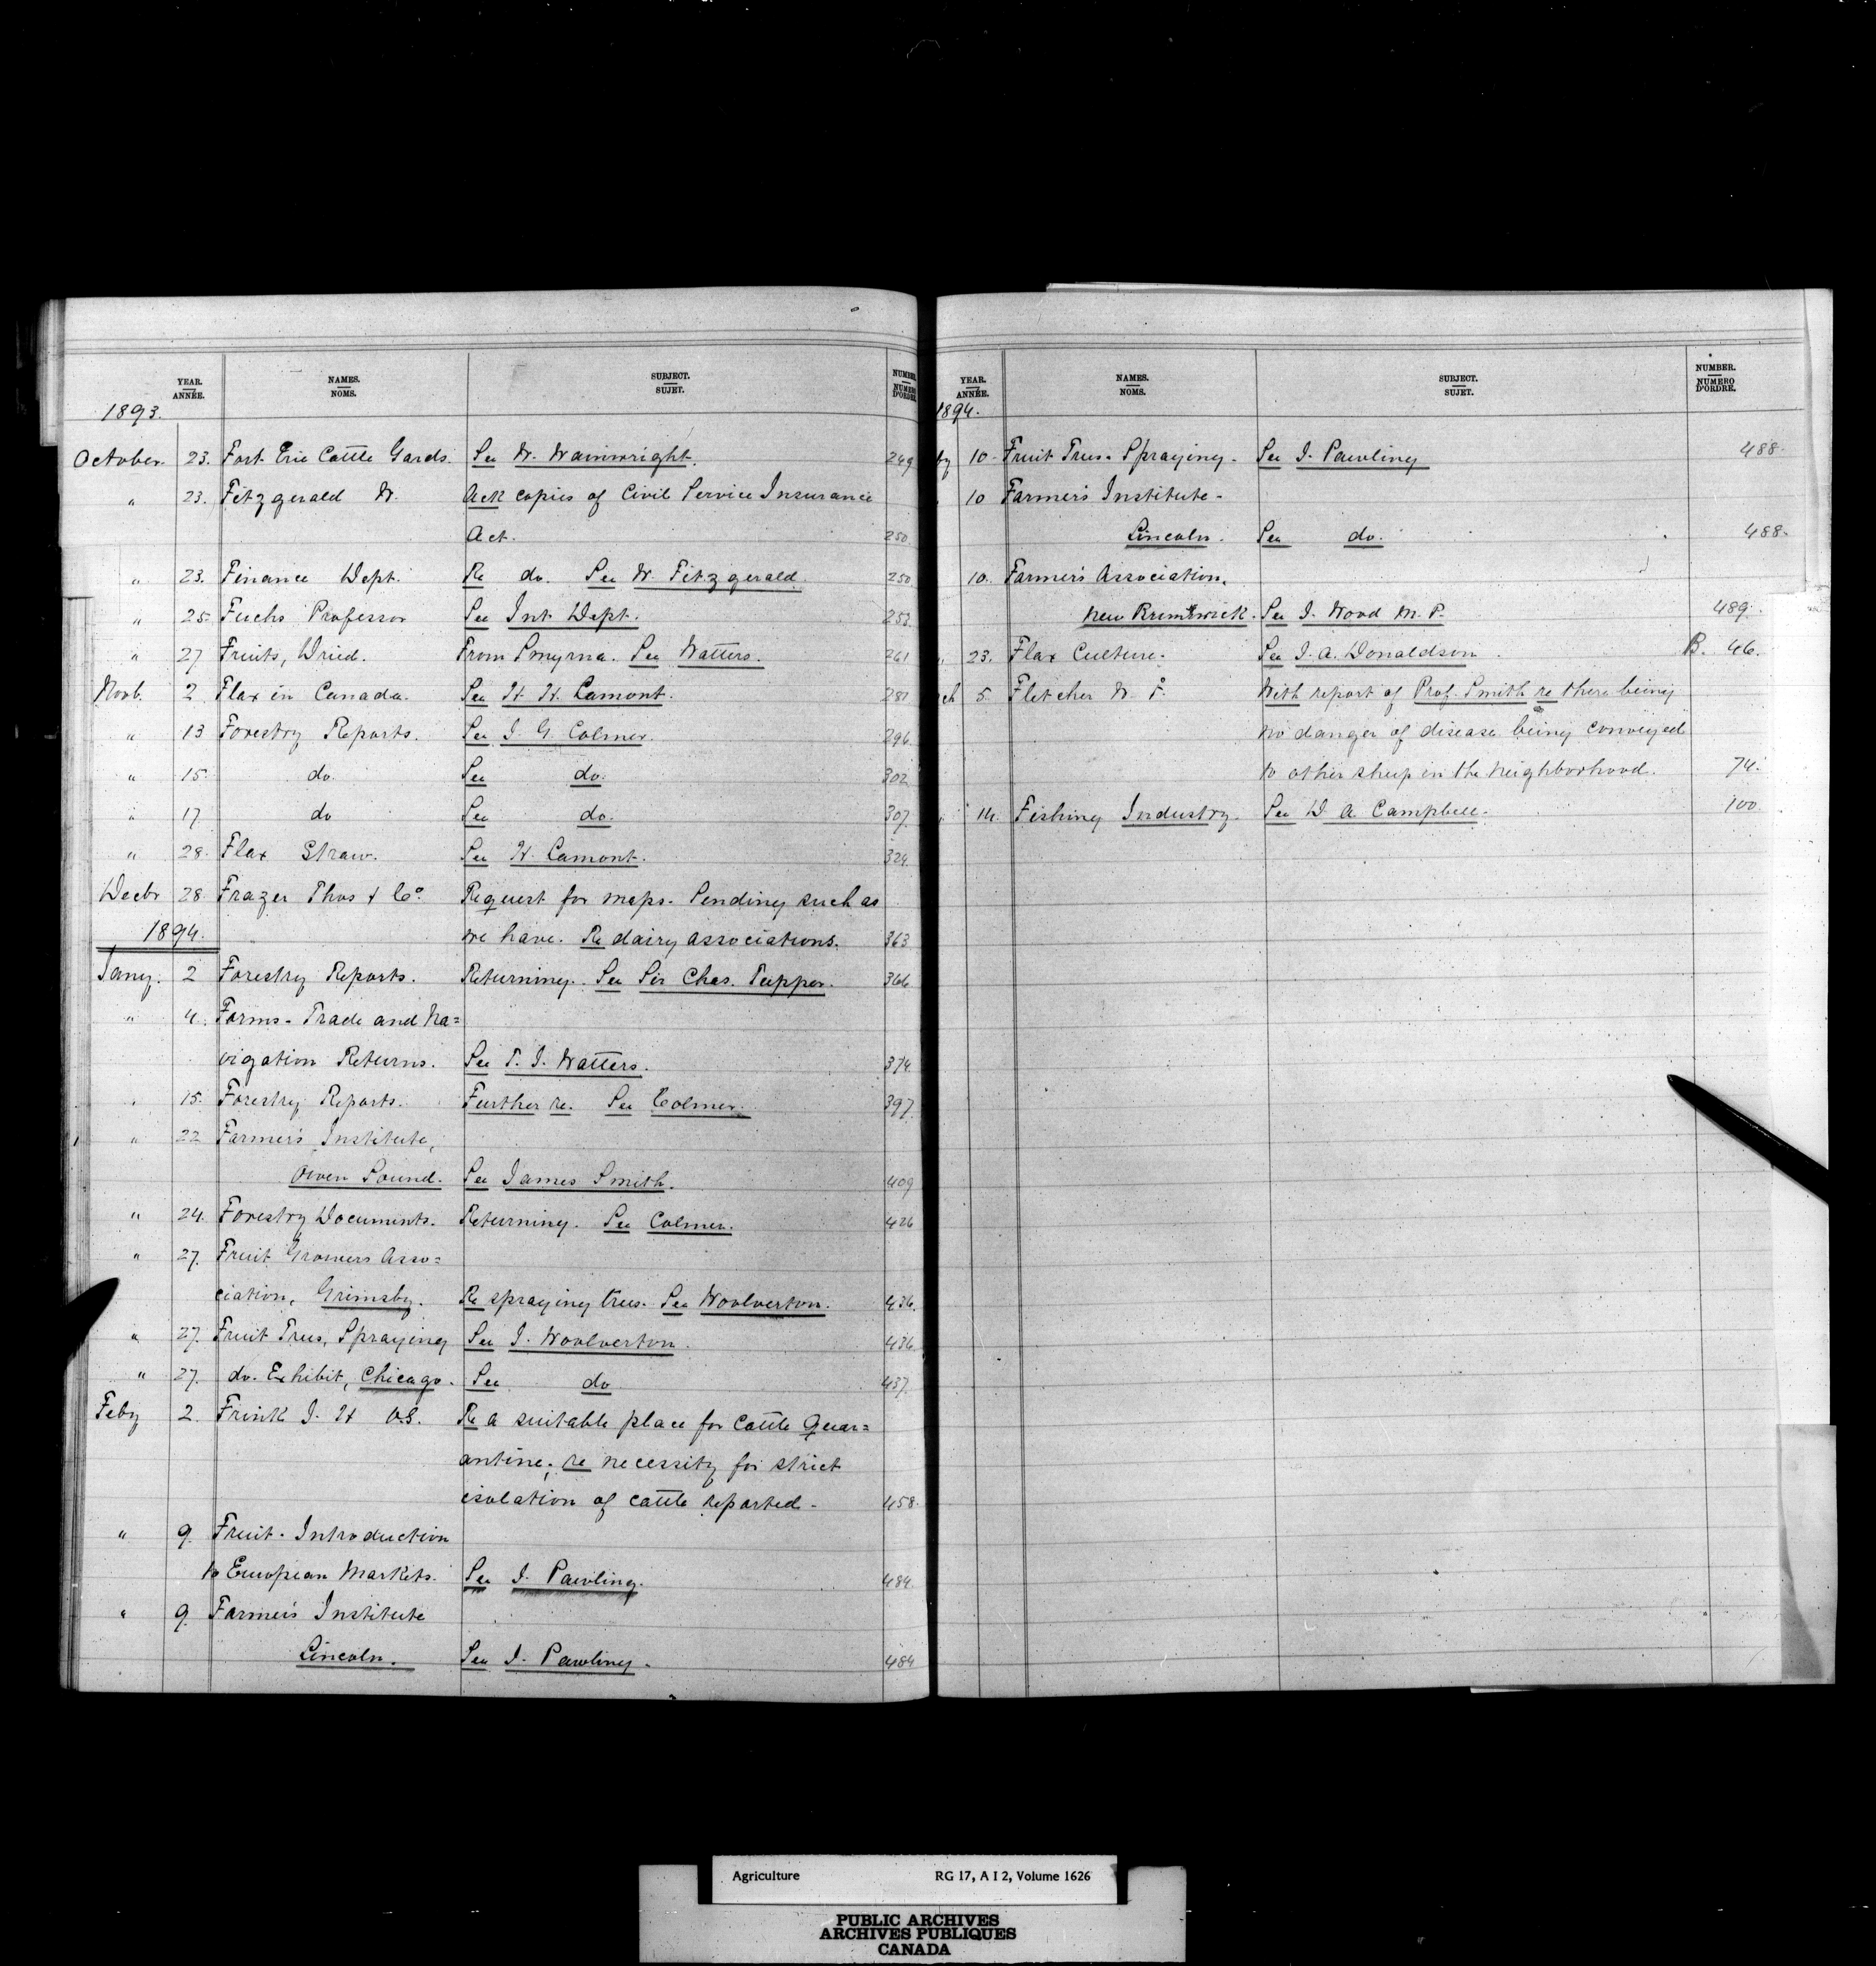 YEAR. ANNÉE. NAMES. NOMS. SUBJECT. SUJET. NUMBER. NUMERO D'ORDRE.
1893.
October 23. Fort Erie Cattle Gards. See W. Wainwright. 249
" 23. Fitzgerald W. Ack copies of Civil Service Insurance
Act. 250.
" 23. Finance Dept. Re do. See W. Fitzgerald. 250
" 25. Fuchs Professor See Int Dept. 253
" 27 Fruits, Dried. From Smyrna. See Watters. 261
Novb. 2 Flax in Canada. See H. H. Lamont. 281
" 13 Forestry Reports. See J. G. Colmer. 296
" 15. do. See do. 302
" 17 do See do. 307.
" 28. Flax Straw. See H. Lamont. 329
Decbr 28. Frazer Thos & Co. Request for maps. Sending such as
1894. we have. Re dairy associations. 363
Jany. 2 Forestry Reports. Returning. See Sir Chas. Tupper. 366
" 4. Forms - Trade and Na=
vigation Returns. See T. J. Watters. 374
" 15. Forestry Reports. Further re. See Colmer. 397
" 22 Farmer's Institute,
Owen Sound. See James Smith. 409
" 24. Forestry Documents. Returning. See Colmer. 426
" 27. Fruit Growers Asso=
ciation, Grimsby. Re spraying trees. See Woolverton. 436.
" 27. Fruit Trees, Spraying See J. Woolverton. 436
" 27. do. Exhibit, Chicago. See do 437.
Feby 2. Frink J. H V.S. Re a suitable place for Cattle Quar=
antine; re necessity for strict
isolation of cattle reported - 458.
" 9. Fruit - Introduction
to European Markets. See J. Pawling. 484.
" 9. Farmer's Institute
Lincoln. See J. Pawling. 484
YEAR. ANNÉE. NAMES. NOMS. SUBJECT. SUJET. NUMBER. NUMERO D'ORDRE.
1894.
by 10. Fruit Trees - Spraying - See J. Pawling 488.
10 Farmer's Institute -
Lincoln. See do. 488.
10. Farmer's Association.
New Brunswick. See J. Wood M. P. 489.
" 23. Flax Culture. See J. A. Donaldson B. 46.
ch 5. Fletcher W. F. With report of Prof. Smith re there being
no danger of disease being conveyed
to other sheep in the neighborhood. 74.
" 14. Fishing Industry. See D A. Campbell. 100.
Agriculture RG 17, A I 2, Volume 1626
PUBLIC ARCHIVES
ARCHIVES PUBLIQUES
CANADA